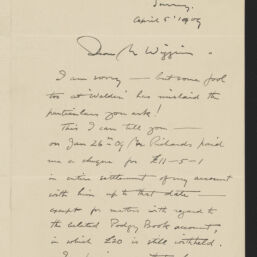 Surrey.
April 5' 1909
Dear Mr Wiggins.
I am sorry — but some fool
too at 'Walden' has mislaid the
particulars you ask!
This I can tell you —
on Jan 26th 09 Mr Richards paid
me a cheque for £11-5-1
in entire settlement of my account
with him up to that date —
except for matters with regard to
the belated Podgy Book account,
in which £20 is still withheld.